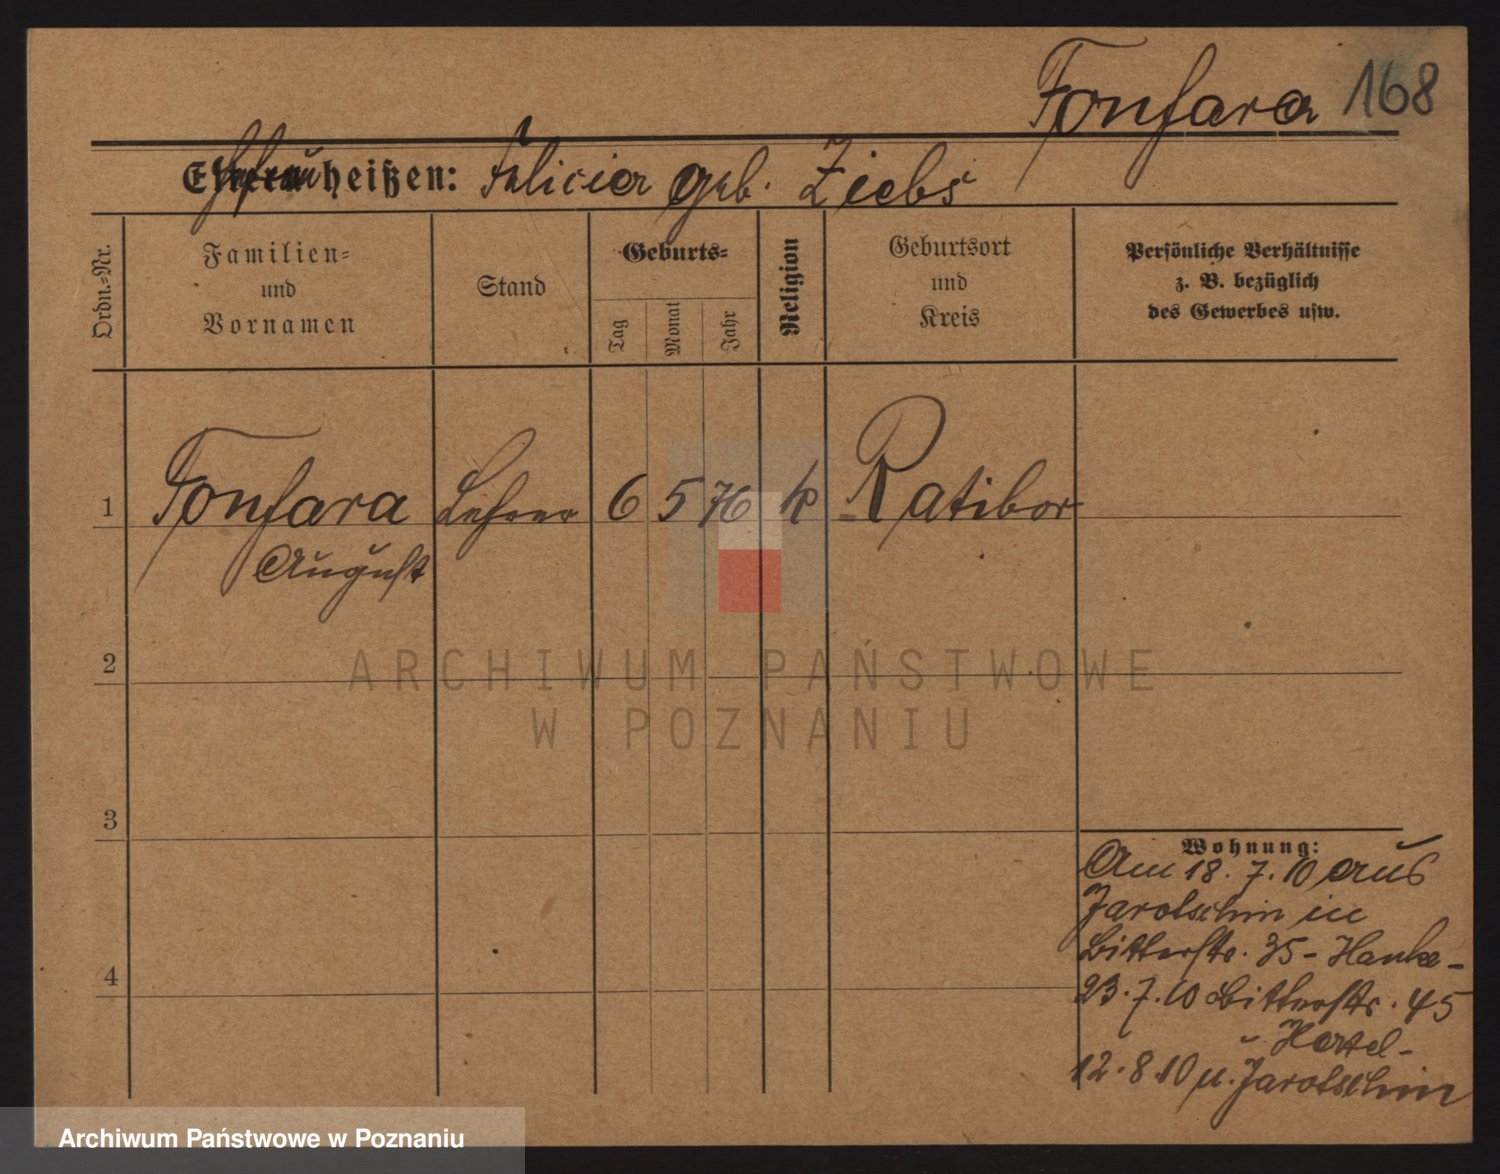 Fonfara 168
Ehefrau heißen: Felicia geb. Ziebs
Ordn.=Nr.
Familien=
und
Vornamen
Stand
Geburts=
Tag
Monat
Jahr
Religion
Geburtsort
und
Kreis
Persönliche Verhältnisse
z. B. bezüglich
des Gewerbes usw.
1 Fonfara Lehrer 6 5 76 k Ratibor
August
2
3
4
Wohnung:
Am 18. 7. 10 aus
Jarotschin in
Bitterstr. 35 - Hanke -
23. 7. 10 Bitterstr. 45
Hertel -
12. 8. 10 n. Jarotschin
ARCHIWUM PAŃSTWOWE
W POZNANIU
Archiwum Państwowe w Poznaniu